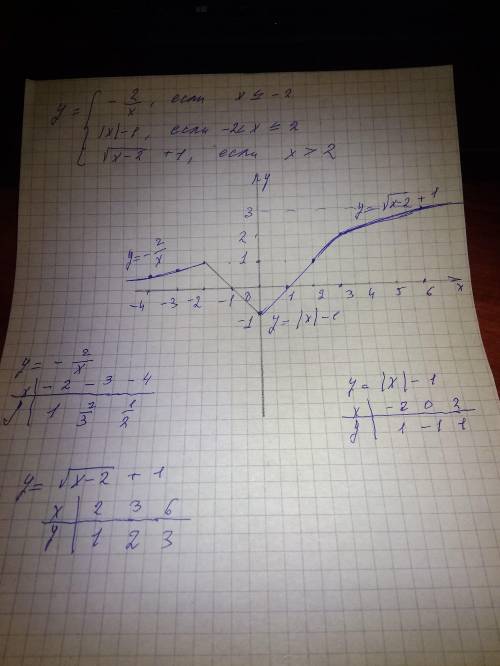 y = { - 2/x, если x ≤ -2
|x|-1, если -2< x ≤ 2
√x-2 + 1, если x > 2
y
y = √x-2 + 1
3
y = - 2/x
2
1
-4 -3 -2 -1 0 1 2 3 4 5 6 x
-1
y = |x| - 1
y = - 2/x
x | -2 -3 -4
y | 1 2/3 1/2
y = |x| - 1
x | -2 0 2
y | 1 -1 1
y = √x-2 + 1
x | 2 3 6
y | 1 2 3